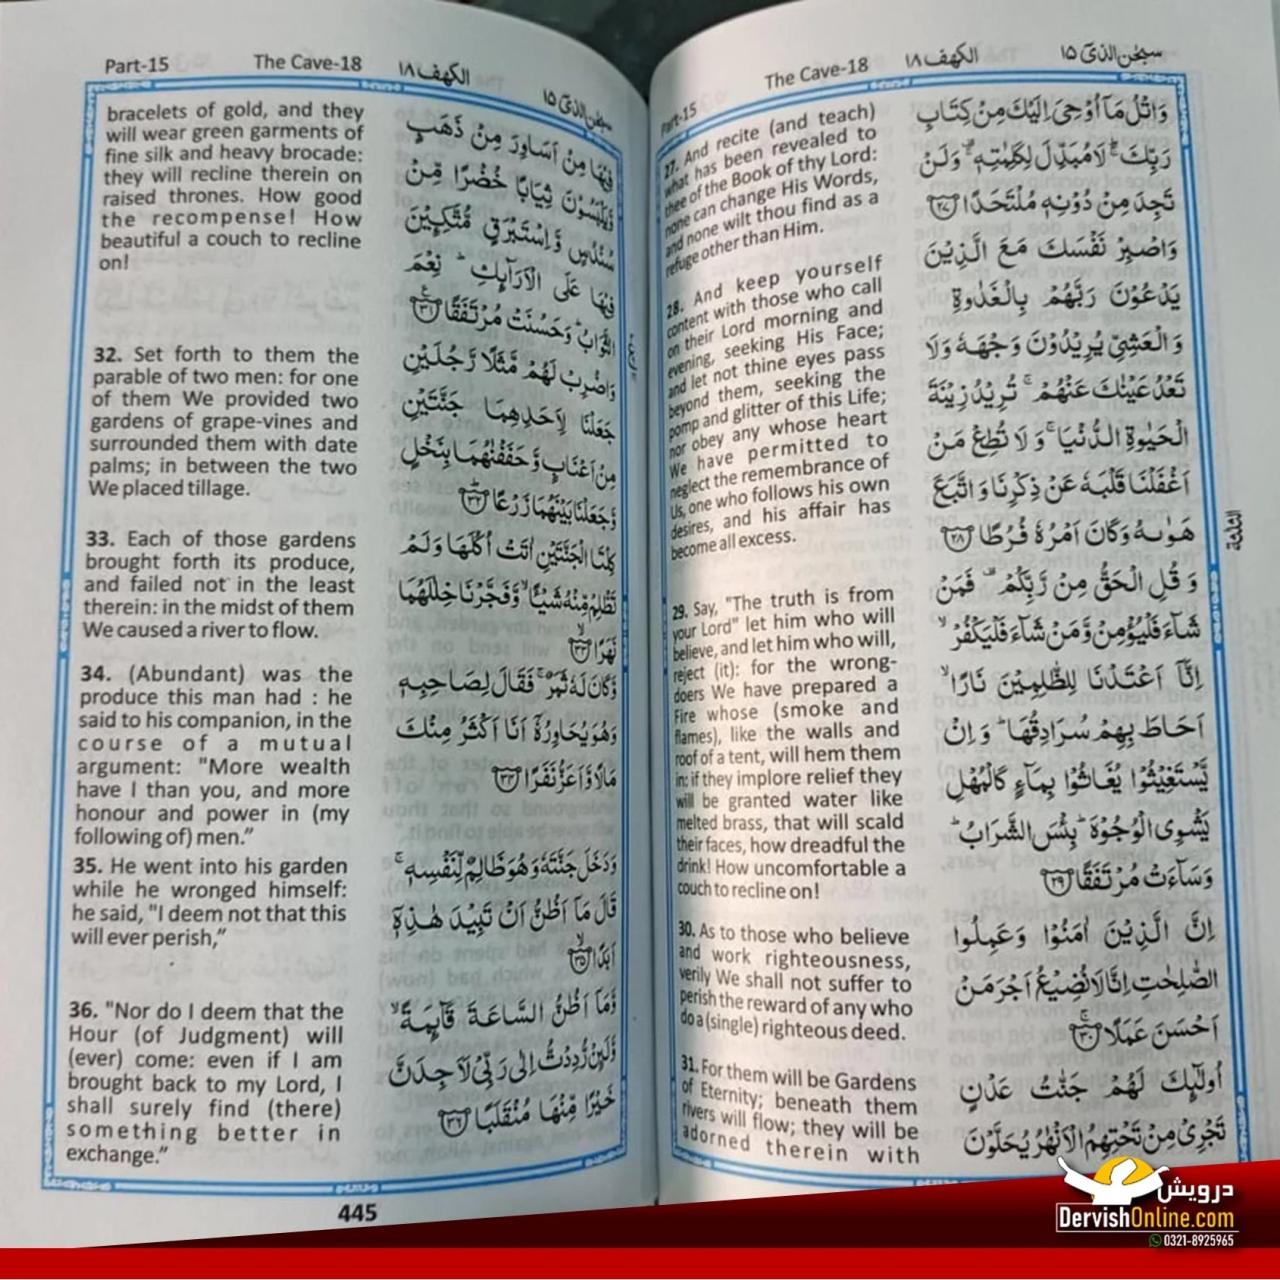 سبحٰن الذیٓ ۱۵
الكهف ۱۸
The Cave-18
Part-15
وَاتْلُ مَاۤ اُوْحِىَ اِلَيْكَ مِنْ كِتَابِ
رَبِّكَ ۚ لَا مُبَدِّلَ لِكَلِمٰتِهٖ ۚ وَلَنْ
تَجِدَ مِنْ دُوْنِهٖ مُلْتَحَدًا ۲۷
وَاصْبِرْ نَفْسَكَ مَعَ الَّذِيْنَ
يَدْعُوْنَ رَبَّهُمْ بِالْغَدٰوةِ
وَالْعَشِىِّ يُرِيْدُوْنَ وَجْهَهٗ وَلَا
تَعْدُ عَيْنٰكَ عَنْهُمْ ۚ تُرِيْدُ زِيْنَةَ
الْحَيٰوةِ الدُّنْيَا ۚ وَ لَا تُطِعْ مَنْ
اَغْفَلْنَا قَلْبَهٗ عَنْ ذِكْرِنَا وَاتَّبَعَ
هَوٰىهُ وَكَانَ اَمْرُهٗ فُرُطًا ۲۸
وَ قُلِ الْحَقُّ مِنْ رَّبِّكُمْ ۗ فَمَنْ
شَآءَ فَلْيُؤْمِنْ وَّمَنْ شَآءَ فَلْيَكْفُرْ ۙ
اِنَّاۤ اَعْتَدْنَا لِلظّٰلِمِيْنَ نَارًا ۙ
اَحَاطَ بِهِمْ سُرَادِقُهَا ؕ وَ اِنْ
يَّسْتَغِيْثُوْا يُغَاثُوْا بِمَآءٍ كَالْمُهْلِ
يَشْوِى الْوُجُوْهَ ؕ بِئْسَ الشَّرَابُ ؕ
وَسَآءَتْ مُرْتَفَقًا ۲۹
اِنَّ الَّذِيْنَ اٰمَنُوْا وَعَمِلُوا
الصّٰلِحٰتِ اِنَّا لَا نُضِيْعُ اَجْرَ مَنْ
اَحْسَنَ عَمَلًا ۚ ۳۰
اُولٰٓئِكَ لَهُمْ جَنّٰتُ عَدْنٍ
تَجْرِىْ مِنْ تَحْتِهِمُ الْاَنْهٰرُ يُحَلَّوْنَ
27. And recite (and teach)
what has been revealed to
thee of the Book of thy Lord:
none can change His Words,
and none wilt thou find as a
refuge other than Him.
28. And keep yourself
content with those who call
on their Lord morning and
evening, seeking His Face;
and let not thine eyes pass
beyond them, seeking the
pomp and glitter of this Life;
nor obey any whose heart
We have permitted to
neglect the remembrance of
Us, one who follows his own
desires, and his affair has
become all excess.
29. Say, "The truth is from
your Lord" let him who will
believe, and let him who will,
reject (it): for the wrong-
doers We have prepared a
Fire whose (smoke and
flames), like the walls and
roof of a tent, will hem them
in: if they implore relief they
will be granted water like
melted brass, that will scald
their faces, how dreadful the
drink! How uncomfortable a
couch to recline on!
30. As to those who believe
and work righteousness,
verily We shall not suffer to
perish the reward of any who
do a (single) righteous deed.
31. For them will be Gardens
of Eternity; beneath them
rivers will flow; they will be
adorned therein with
سبحٰن الذیٓ ۱۵
الكهف ۱۸
The Cave-18
Part-15
فِيْهَا مِنْ اَسَاوِرَ مِنْ ذَهَبٍ
وَّيَلْبَسُوْنَ ثِيَابًا خُضْرًا مِّنْ
سُنْدُسٍ وَّاِسْتَبْرَقٍ مُّتَّكِـِٕيْنَ
فِيْهَا عَلَى الْاَرَآئِكِ ؕ نِعْمَ
الثَّوَابُ ؕ وَحَسُنَتْ مُرْتَفَقًا ۳۱
وَاضْرِبْ لَهُمْ مَّثَلًا رَّجُلَيْنِ
جَعَلْنَا لِاَحَدِهِمَا جَنَّتَيْنِ
مِنْ اَعْنَابٍ وَّحَفَفْنٰهُمَا بِنَخْلٍ
وَّجَعَلْنَا بَيْنَهُمَا زَرْعًا ؕ ۳۲
كِلْتَا الْجَنَّتَيْنِ اٰتَتْ اُكُلَهَا وَلَمْ
تَظْلِمْ مِّنْهُ شَيْـًٔا ۙ وَّفَجَّرْنَا خِلٰلَهُمَا
نَهَرًا ۙ ۳۳
وَّكَانَ لَهٗ ثَمَرٌ ۚ فَقَالَ لِصَاحِبِهٖ
وَهُوَ يُحَاوِرُهٗۤ اَنَا اَكْثَرُ مِنْكَ
مَالًا وَّاَعَزُّ نَفَرًا ۳۴
وَدَخَلَ جَنَّتَهٗ وَهُوَ ظَالِمٌ لِّنَفْسِهٖ ۚ
قَالَ مَاۤ اَظُنُّ اَنْ تَبِيْدَ هٰذِهٖۤ
اَبَدًا ۙ ۳۵
وَّمَاۤ اَظُنُّ السَّاعَةَ قَآئِمَةً ۙ
وَّلَئِنْ رُّدِدْتُّ اِلٰى رَبِّىْ لَاَجِدَنَّ
خَيْرًا مِّنْهَا مُنْقَلَبًا ۳۶
bracelets of gold, and they
will wear green garments of
fine silk and heavy brocade:
they will recline therein on
raised thrones. How good
the recompense! How
beautiful a couch to recline
on!
32. Set forth to them the
parable of two men: for one
of them We provided two
gardens of grape-vines and
surrounded them with date
palms; in between the two
We placed tillage.
33. Each of those gardens
brought forth its produce,
and failed not in the least
therein: in the midst of them
We caused a river to flow.
34. (Abundant) was the
produce this man had : he
said to his companion, in the
course of a mutual
argument: "More wealth
have I than you, and more
honour and power in (my
following of) men."
35. He went into his garden
while he wronged himself:
he said, "I deem not that this
will ever perish,"
36. "Nor do I deem that the
Hour (of Judgment) will
(ever) come: even if I am
brought back to my Lord, I
shall surely find (there)
something better in
exchange."
445
درویش
DervishOnline.com
0321-8925965